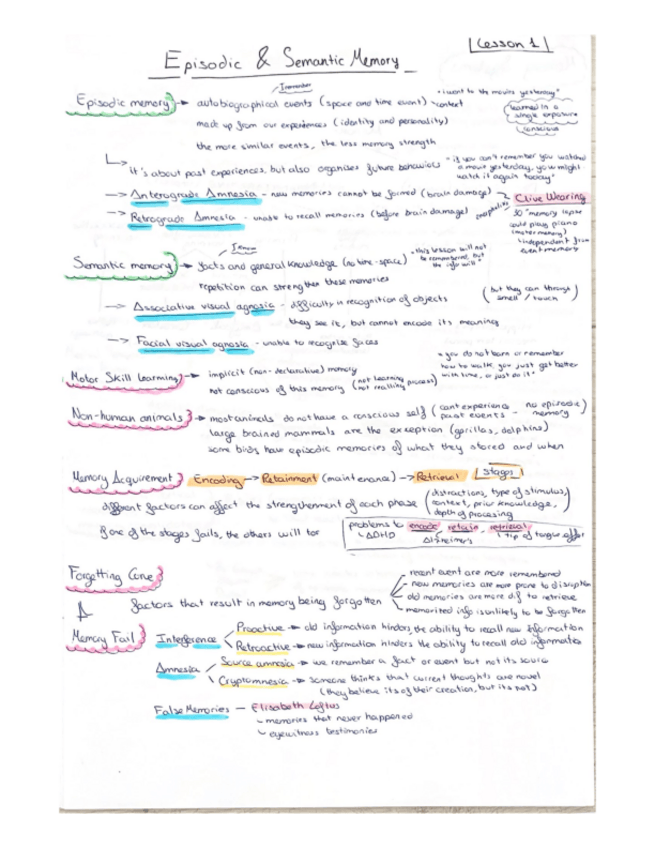 Lesson 1
Episodic & Semantic Memory
I remember
Episodic memory → autobiographical events (space and time event) + context
"i went to the movies yesterday"
learned in a single exposure
conscious
made up from our experiences (identity and personality)
the more similar events, the less memory strength
it's about past experiences, but also organises future behaviors
"if you can't remember you watched a movie yesterday, you might watch it again today"
→ Anterograde Amnesia - new memories cannot be formed (brain damage)
→ Retrograde Amnesia - unable to recall memories (before brain damage)
Clive Wearing
30" memory lapse
could play piano
(motor memory)
independent from event memory
I know
Semantic memory → facts and general knowledge (no time-space)
"this lesson will not be remembered, but the info will"
repetition can strengthen these memories
→ Associative visual agnosia - difficulty in recognition of objects
(but they can through smell / touch)
they see it, but cannot encode its meaning
→ Facial visual agnosia - unable to recognise faces
Motor Skill Learning → implicit (non-declarative) memory
not conscious of this memory (not learning, not recalling process)
"you do not learn or remember how to walk, you just get better with time, or just do it"
Non-human animals → most animals do not have a conscious self (cant experience past events - no episodic memory)
large brained mammals are the exception (gorillas, dolphins)
some birds have episodic memories of what they stored and when
Memory Acquirement Encoding → Retainment (maintenance) → Retrieval
Stages
different factors can affect the strengthenment of each phase
(distractions, type of stimulus, context, prior knowledge, depth of procesing)
if one of the stages fails, the others will too
problems to encode retain retrieval
ADHD
Alzheimers
tip of tongue effect
Forgetting Curve
factors that result in memory being forgotten
recent event are more remembered
new memories are more prone to disruption
old memories are more dif to retrieve
memorited info is unlikely to be forgotten
Memory Fail
Interference
Proactive → old information hinders the ability to recall new information
Retroactive → new information hinders the ability to recall old information
Amnesia
Source amnesia → we remember a fact or event but not its source
Cryptomnesia → someone thinks that current thoughts are novel
(they believe its of their creation, but its not)
False Memories — Elisabeth Loftus
memories that never happened
eyewitness testimonies